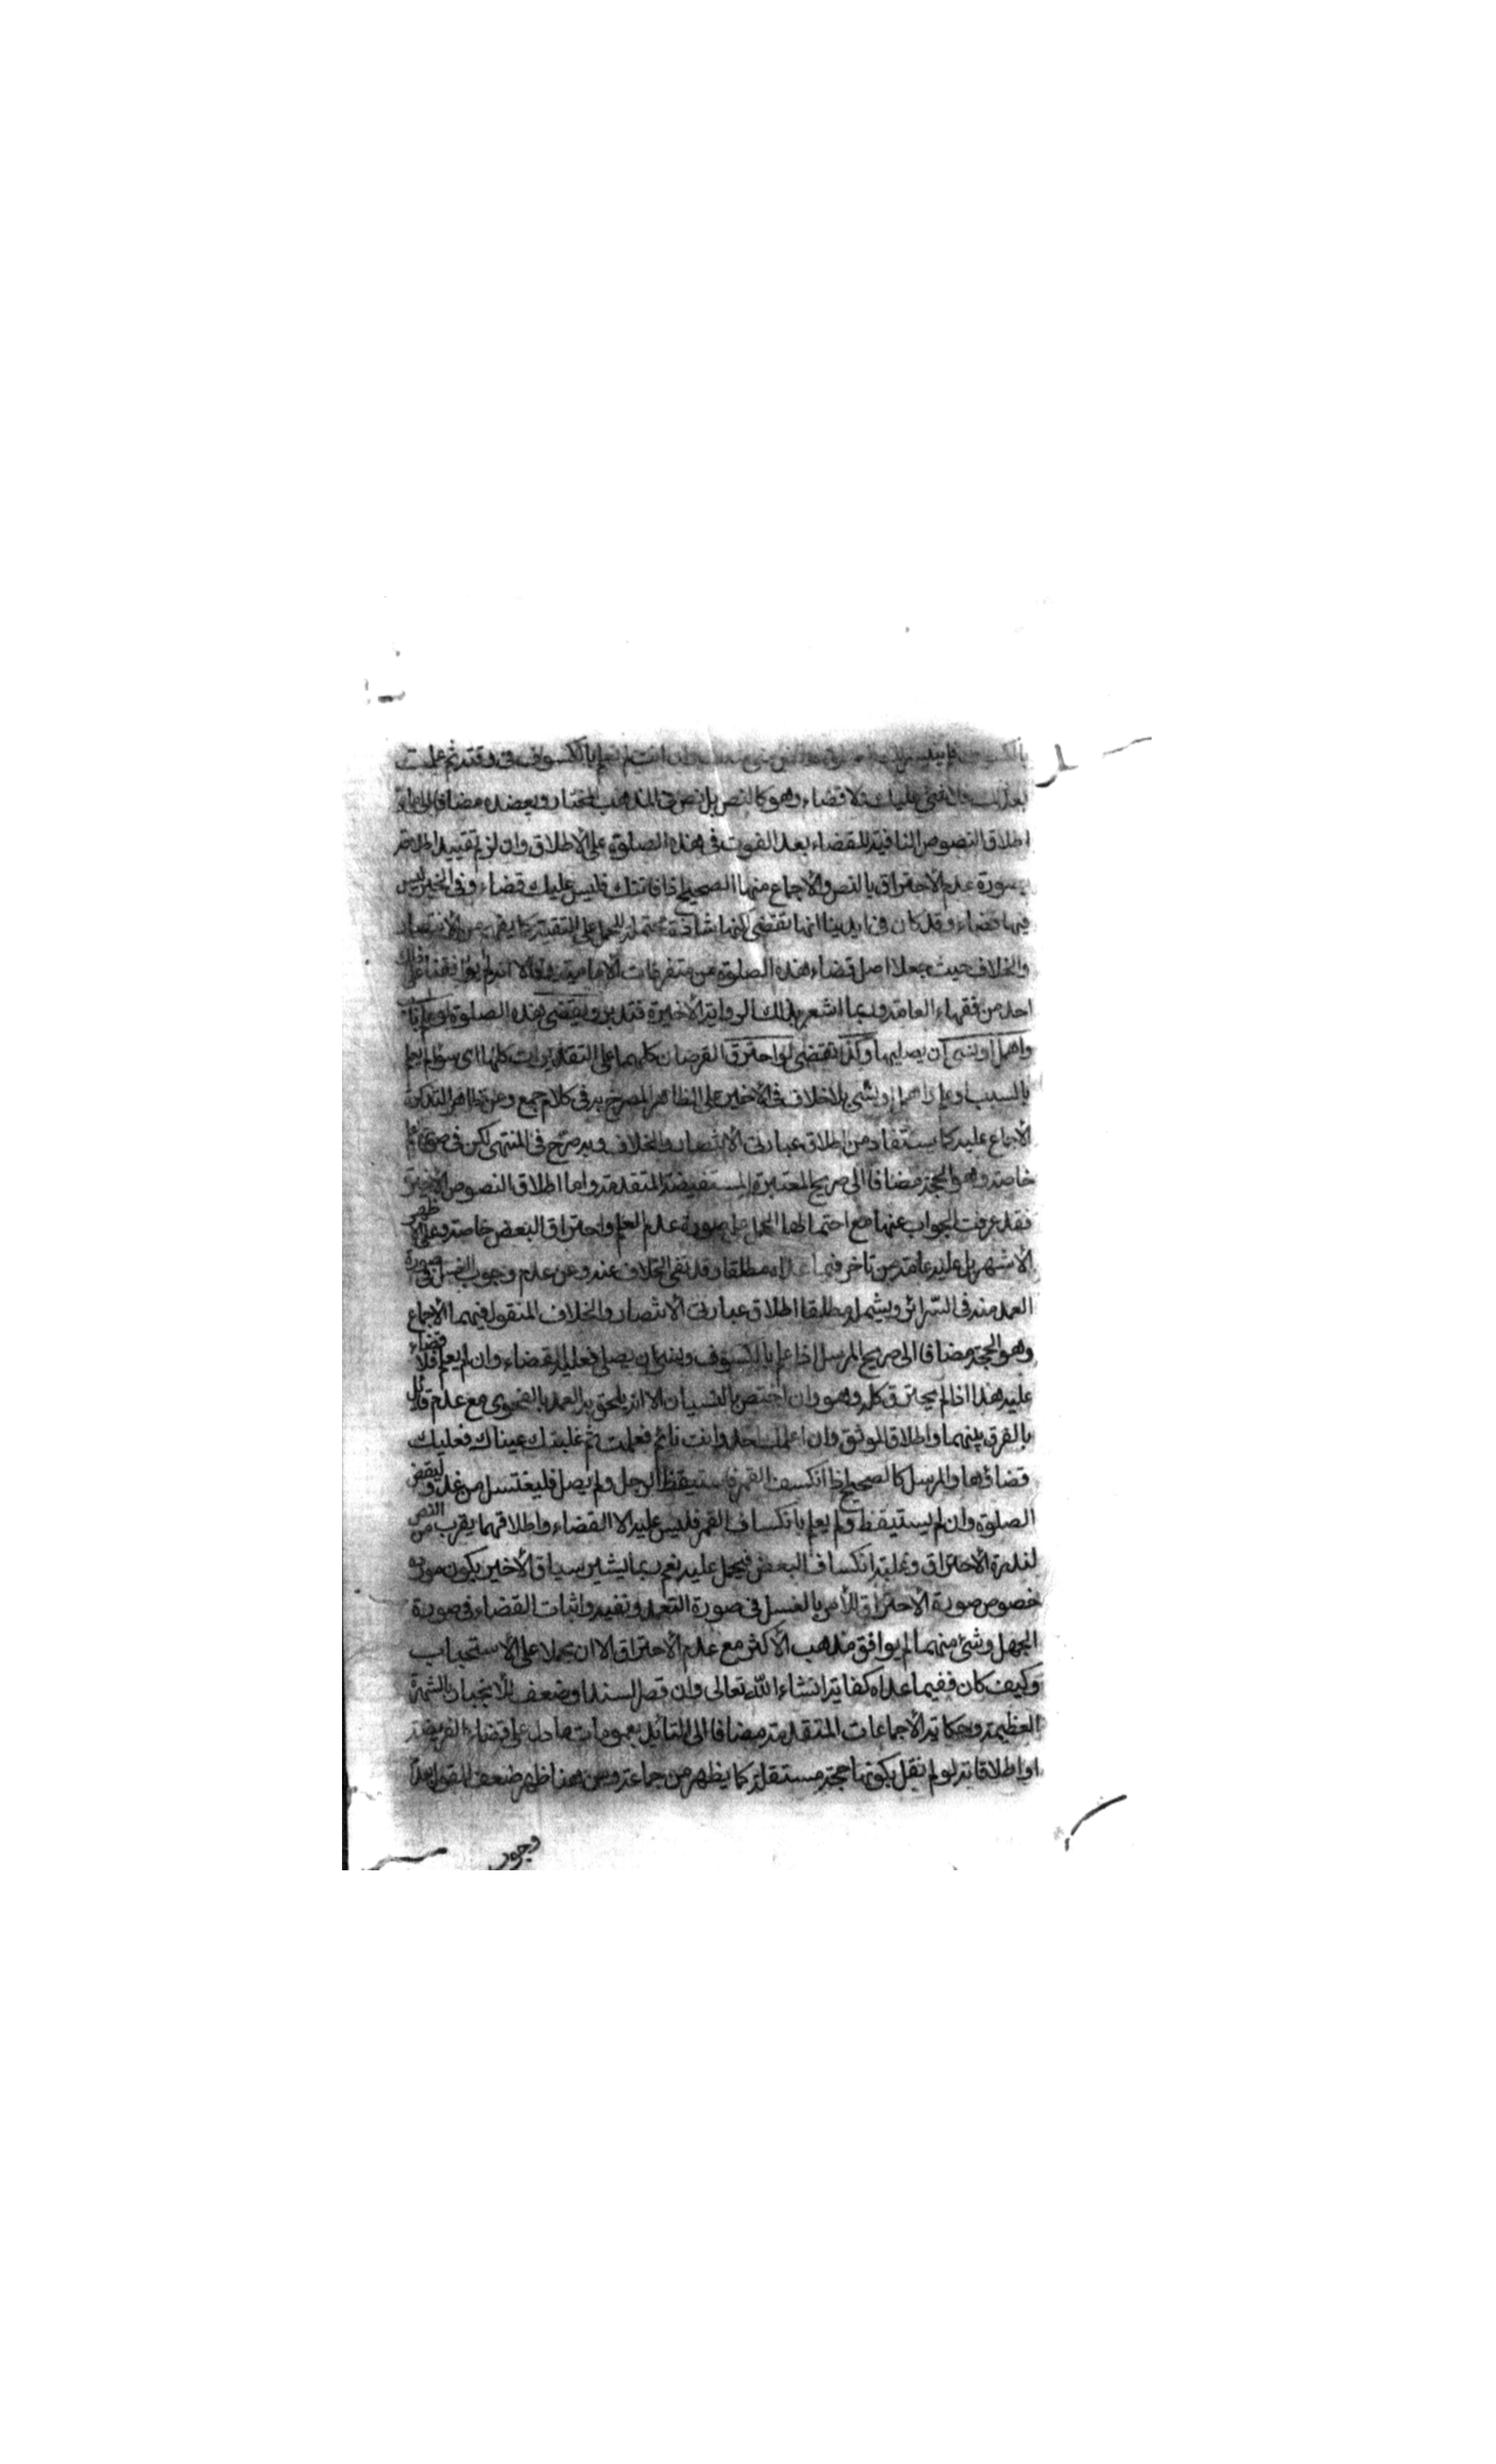 لم تعلم بالكسوف فى وقته ثم علمت
بعد ذلك فلا شئ عليك ولا قضاء وهو كالنص بل نص فى المذهب المختار ويعضده مضافا الى
اطلاق النصوص النافية للقضاء بعد الفوت فى هذه الصلوة على الاطلاق وان لزم تقييد اطلاقها
بصورة عدم الاحتراق بالنص والاجماع منها الصحيح اذا فاتتك فليس عليك قضاء وفى الخبر ليس
فيها قضاء وقد كان فى ايدينا انها تقضى لكنها شاذة محتملة للحمل على التقية كما يفهم من الانتصار
والخلاف حيث جعلا اصل قضاء هذه الصلوة من متفردات الامامية وقالا انه لم يوافقنا على ذلك
احد من فقهاء العامة وربما اشعر بذلك الرواية الاخيرة فتدبر ويقضى هذه الصلوة لو علم
واهمل او نسى ان يصليها وكذا تقضى لو احترق القرصان كلهما على التقديرات كلها اى سواء لم يعلم
بالسبب او علم واهمل او نسى بلا خلاف فى الاخير على الظاهر المصرح به فى كلام جمع وعن ظاهر التذكرة
الاجماع عليه كما يستفاد من اطلاق عبارتى الانتصار والخلاف وبه صرح فى المنتهى لكن فى صورة
خاصة وهو الحجة مضافا الى صريح المعتبرة المستفيضة المتقدمة واما اطلاق النصوص الاخيرة
فقد عرفت الجواب عنها مع احتمالها الحمل على صورة عدم العلم واحتراق البعض خاصة وعلى الاظهر
الاشهر بل عليه عامة من تاخر فيما عداه مطلقا وقد نفى الخلاف عنه وعن عدم وجوب الغسل فى صورة
العمد منه فى السرائر ويشمله مطلقا اطلاق عبارتى الانتصار والخلاف المنقول فيهما الاجماع
وهو الحجة مضافا الى صريح المرسل اذا علم بالكسوف ونسى ان يصلى فعليه القضاء وان لم يعلم فلا قضاء
عليه هذا اذا لم يحترق كله وهو وان اختص بالنسيان الا انه يلحق به العمد بالفحوى مع عدم قائل
بالفرق بينهما واطلاق الموثق وان اعلمك احد وانت نائم فعلمت ثم غلبتك عيناك فعليك
قضاؤها والمرسل كالصحيح اذا انكسف القمر فاستيقظ الرجل ولم يصل فليغتسل من غد وليقض
الصلوة وان لم يستيقظ ولم يعلم بانكساف القمر فليس عليه الا القضاء واطلاقهما يقرب من النص
لندرة الاحتراق وغلبة انكساف البعض فيحمل عليه نعم ربما يشير سياق الاخير بكون مورده
خصوص صورة الاحتراق للأمر بالغسل فى صورة التعمد ونفيه واثبات القضاء فى صورة
الجهل وشئ منهما لم يوافق مذهب الاكثر مع عدم الاحتراق الا ان يحملا على الاستحباب
وكيف كان ففيما عداه كفاية انشاء الله تعالى وان قصر السند او ضعف للانجبار بالشهرة
العظيمة وحكاية الاجماعات المتقدمة مضافا الى التأيل بعمومات ما دل على قضاء الفريضة
او اطلاقاته لو لم نقل بكونها حجة مستقلة كما يظهر من جماعة ومن هنا ظهر ضعف القول بعدم
وجوب